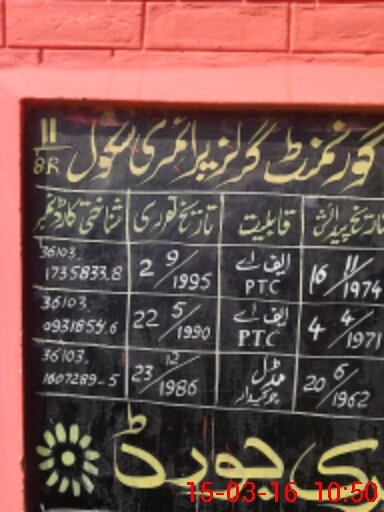 گورنمنٹ گرلز پرائمری سکول 11/8R
تاریخ پیدائش قابلیت تاریخ تقرری شناختی کارڈ نمبر
16 11/1974 ایف اے PTC 2 9/1995 36103-1735833.8
4 4/1971 ایف اے PTC 22 5/1990 36103-0931854.6
20 6/1962 مڈل چوکیدار 23 12/1986 36103-1607289-5
ری بورڈ
15-03-16 10:50